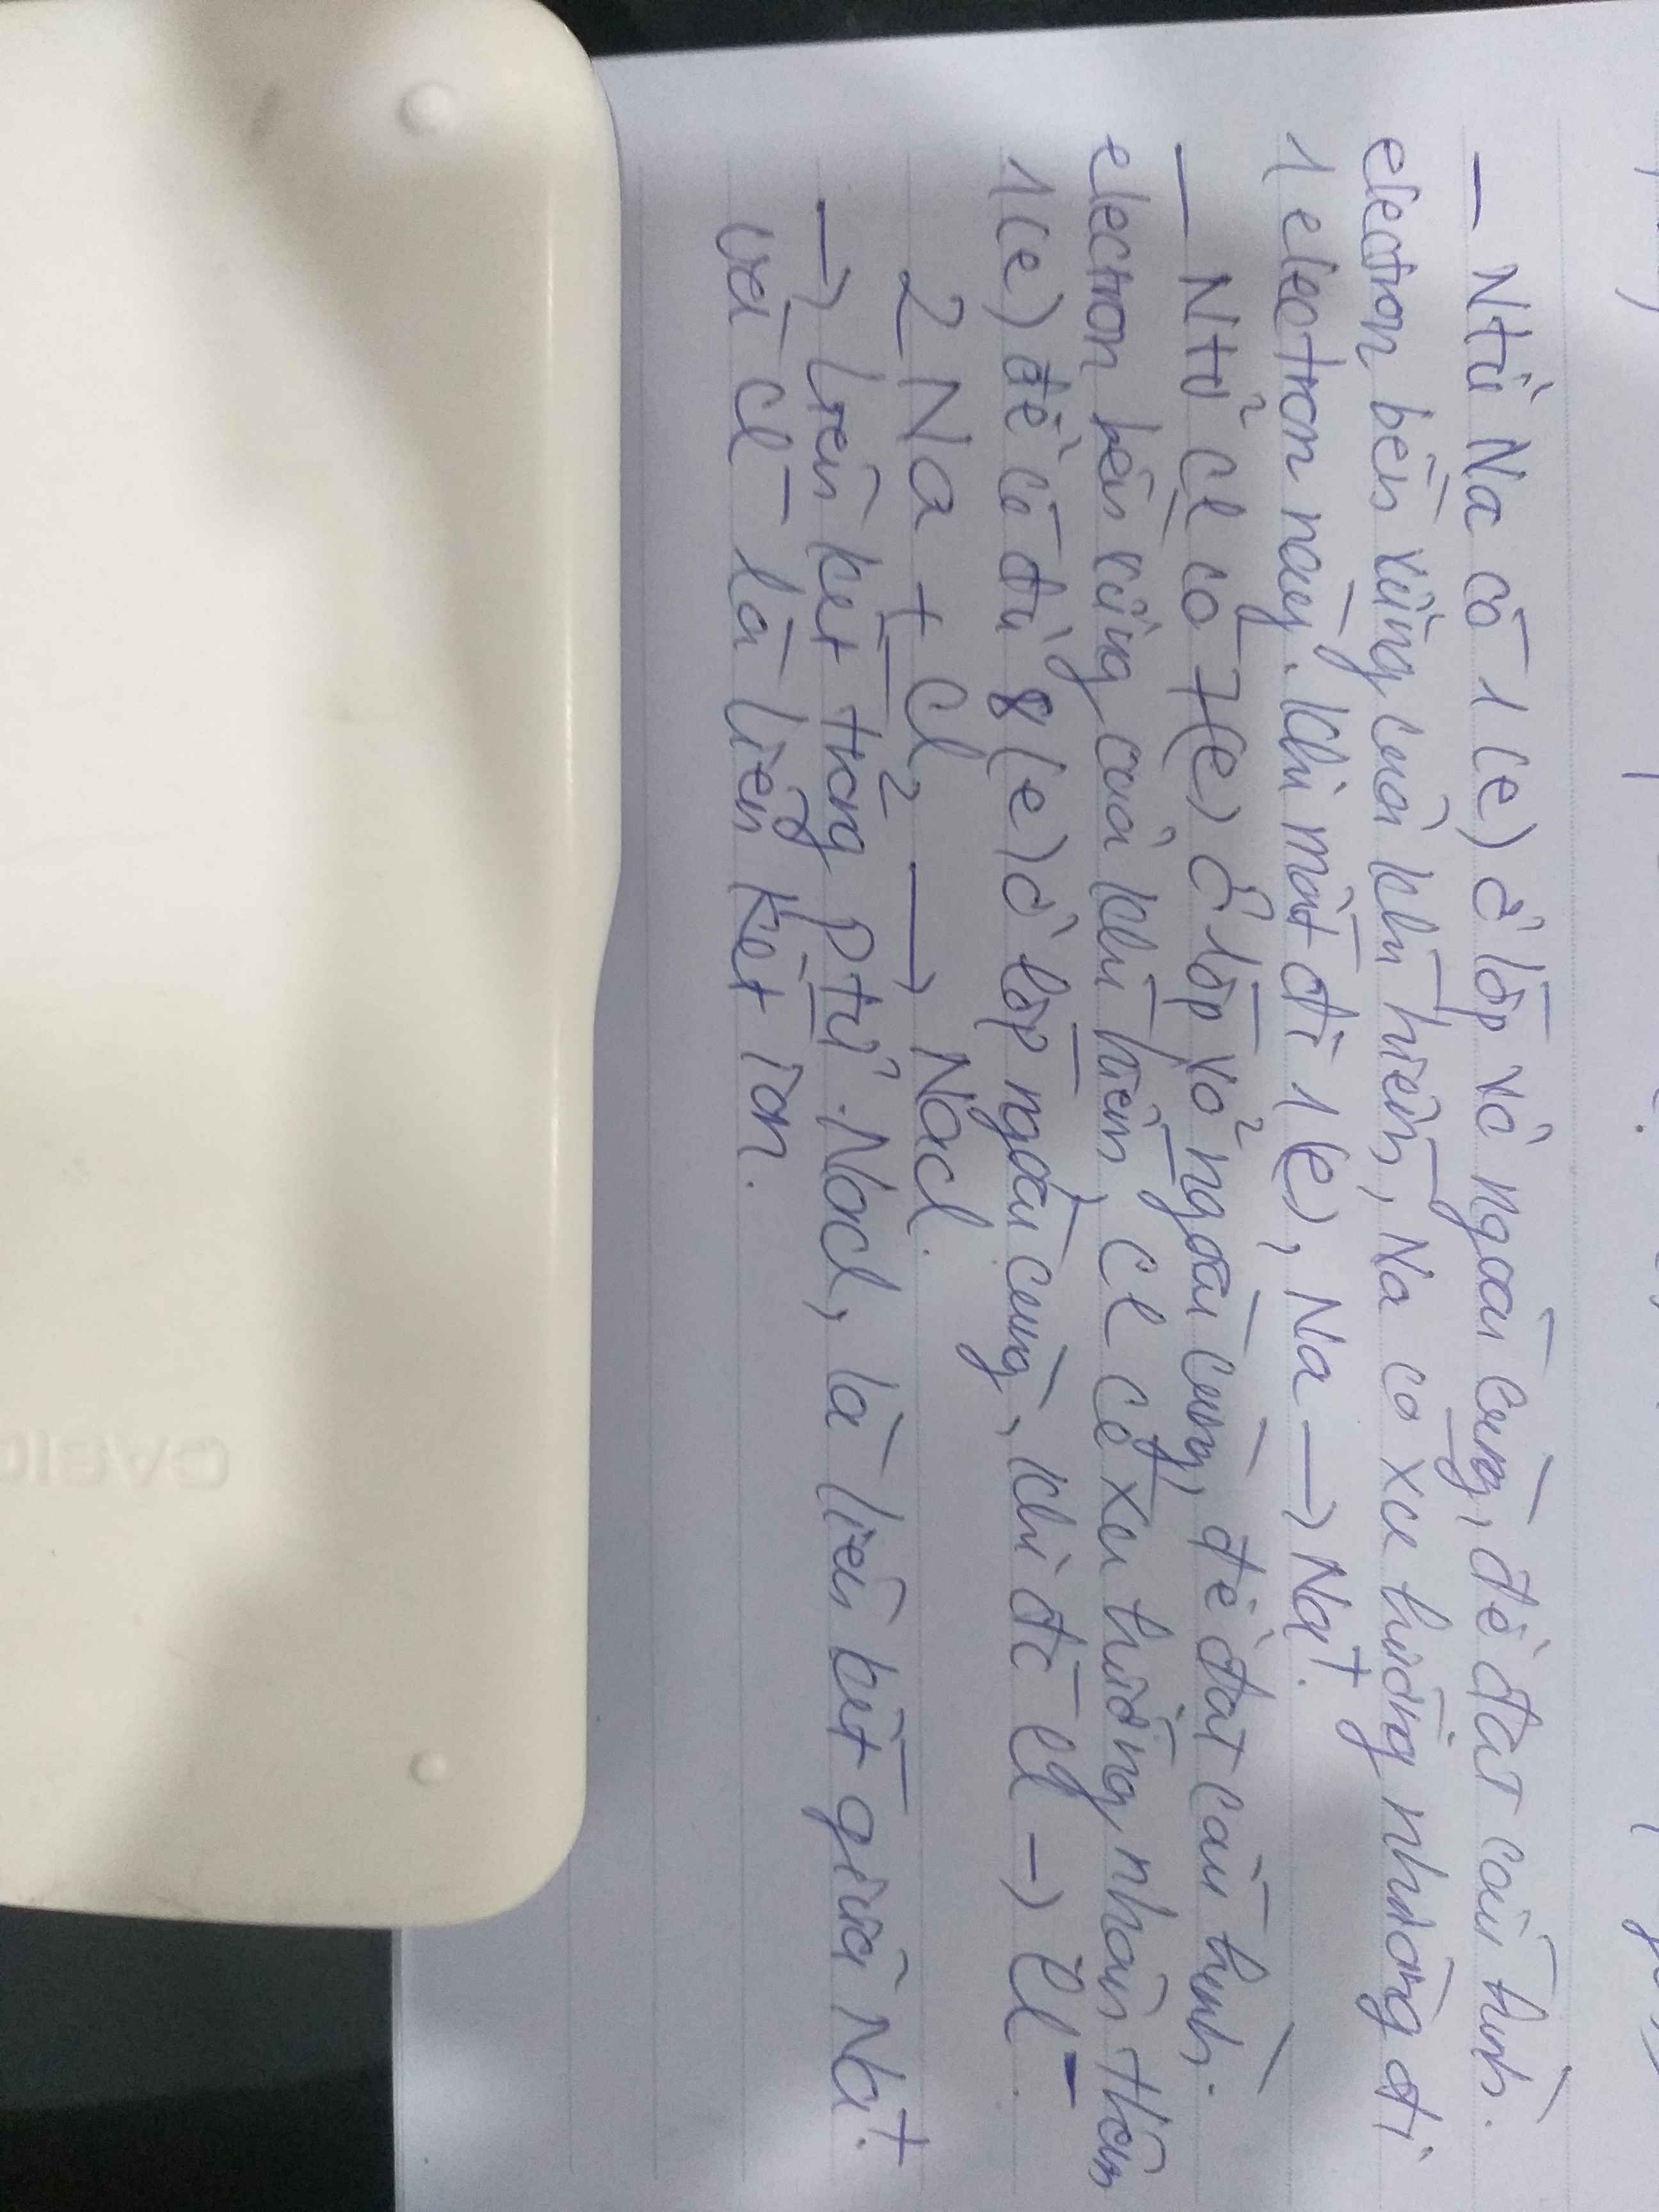 - Ntử Na có 1(e) ở lớp vỏ ngoài cùng, để đạt cấu hình
electron bền vững của khí hiếm, Na có xu hướng nhường đi
1 electron này. Khi mất đi 1(e), Na → Na⁺.
- Ntử Cl có 7(e) ở lớp vỏ ngoài cùng, để đạt cấu hình
electron bền vững của khí hiếm, Cl có xu hướng nhận thêm
1(e) để có đủ 8(e) ở lớp ngoài cùng, khi đó Cl → Cl⁻.
2 Na + Cl₂ → Nacl.
→ Liên kết trong ptử Nacl, là liên kết giữa Na⁺
và cl⁻ là liên kết ion.
CASIO